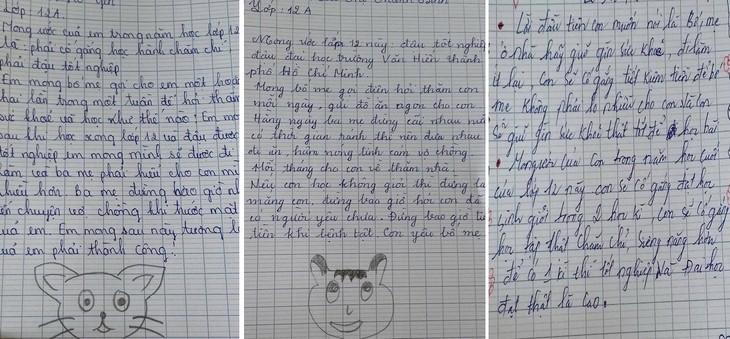 Lớp: 12A.
Mong ước của em trong năm học lớp 12
là: phải cố gắng học hành chăm chỉ
phải đậu tốt nghiệp
Em mong bố mẹ gọi cho em một hoặc
hai lần trong một tuần để hỏi thăm
sức khoẻ và học như thế nào? Em mong
sau khi học xong lớp 12 và đậu được
tốt nghiệp em mong mình sẽ được đi
làm và ba mẹ phải hiểu cho con mìn
nhiều hơn. Ba mẹ đừng bao giờ n
chuyện vợ chồng khi trước mặt
của em. Em mong sau này tương l
của em phải thành công.
Lớp: 12 A
Mong ước lớp 12 này: đậu tốt nghiệp
đậu đại học trường Văn Hiến thành
phố Hồ Chí Minh.
Mong bố mẹ gọi điện hỏi thăm con
mỗi ngày, gửi đồ ăn ngon cho con
Hàng ngày ba mẹ đừng cãi nhau nữa
có thời gian rảnh thì nên đưa nhau
đi ăn, hâm nóng tình cảm vợ chồng.
Mỗi tháng cho con về thăm nhà.
Nếu con học không giỏi thì đừng la
mắng con, đừng bao giờ hỏi con đã
có người yêu chưa. Đừng bao giờ tiế
tiền khi bệnh tật. Con yêu bố mẹ
Lời đầu tiên con muốn nói là Bố, mẹ
ở nhà hãy giữ gìn sức khoẻ, đi làm
ít lại. Con sẽ cố gắng tiết kiệm tiền để bố
mẹ không phải lo nhiều cho con và con
sẽ giữ gìn sức khoẻ thật tốt để học bài
Mong ước của con trong năm học cuối
của lớp 12 này con sẽ cố gắng đạt học
sinh giỏi trong 2 học kì, con sẽ cố gắng
học tập thật chăm chỉ, siêng năng hơn
để có 1 kì thi tốt nghiệp và Đại học
đạt thật là cao.